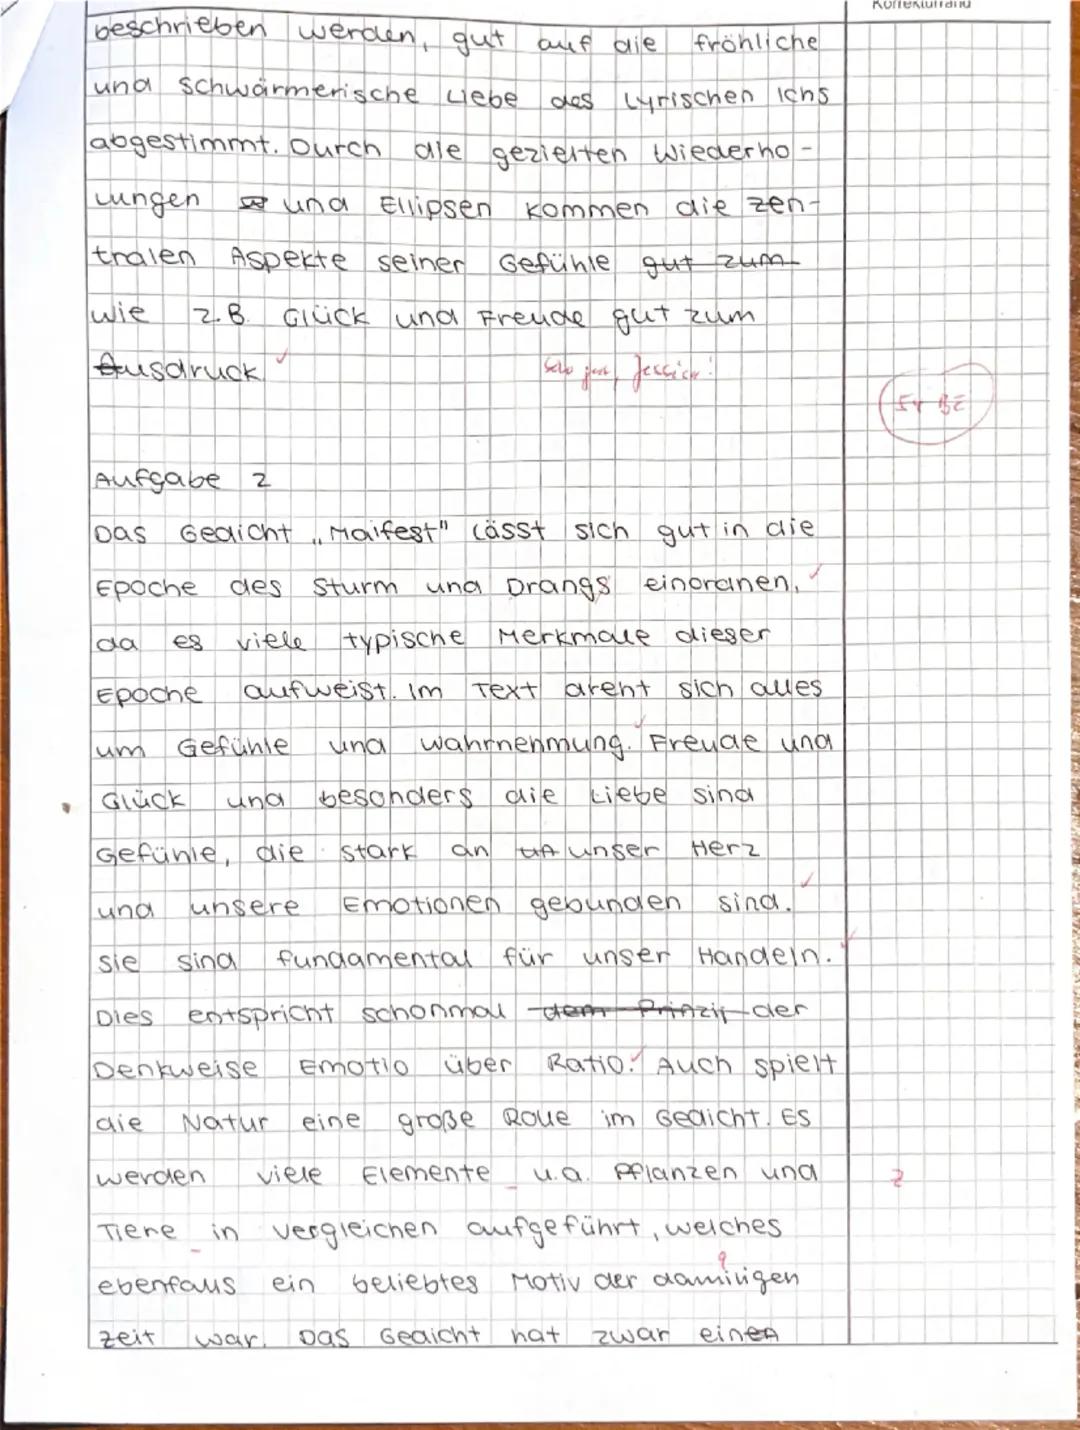 Korrekturrand
beschrieben werden, gut auf die fröhliche
und schwärmerische Liebe des Lyrischen Ichs
abgestimmt. Durch die gezielten Wiederho-
lungen und Ellipsen kommen die zen-
tralen Aspekte seiner Gefühle gut zum
wie z.B. Glück und Freude gut zum
Ausdruck
Sehr gut, Jessica!
BE
Aufgabe 2
Das Gedicht „Maifest" lässt sich gut in die
Epoche des Sturm und Drangs einordnen,
da es viele typische Merkmale dieser
Epoche aufweist. Im Text dreht sich alles
um Gefühle und Wahrnehmung. Freude und
Glück und besonders die Liebe sind
Gefühle, die stark an unser Herz
und unsere Emotionen gebunden sind.
Sie sind fundamental für unser Handeln.
Dies entspricht schonmal dem Prinzip der
Denkweise Emotio über Ratio. Auch spielt
die Natur eine große Rolle im Gedicht. Es
werden viele Elemente u.a. Pflanzen und
Z
Tiere in vergleichen aufgeführt, welches
ebenfalls ein beliebtes Motiv der damiligen
a
Zeit war. Das Gedicht hat zwar einen